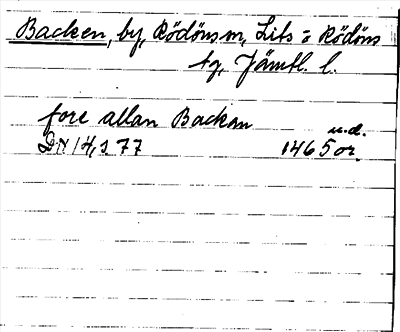 Backen, by, Rödöns sn, Lits o Rödöns
tg, Jämtl. l.
fore allan Backan
u.d.
DN 14, s 77 1465 or.